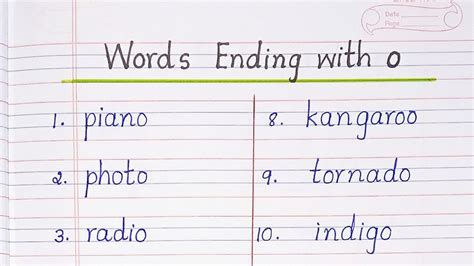 Date
Page
Words Ending with o
1. piano
2. photo
3. radio
8. kangaroo
9. tornado
10. indigo